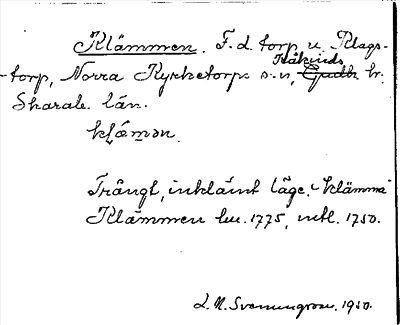 Klämmen. F. d. torp u. Klags-
torp, Norra Kyrketorps s:n, Kåkinds hr.
Skarab. län.
Trångt, inklämt läge. "klämma"
Klämmen hu. 1775, mtl. 1750.
L. M. Svenungsson. 1930.